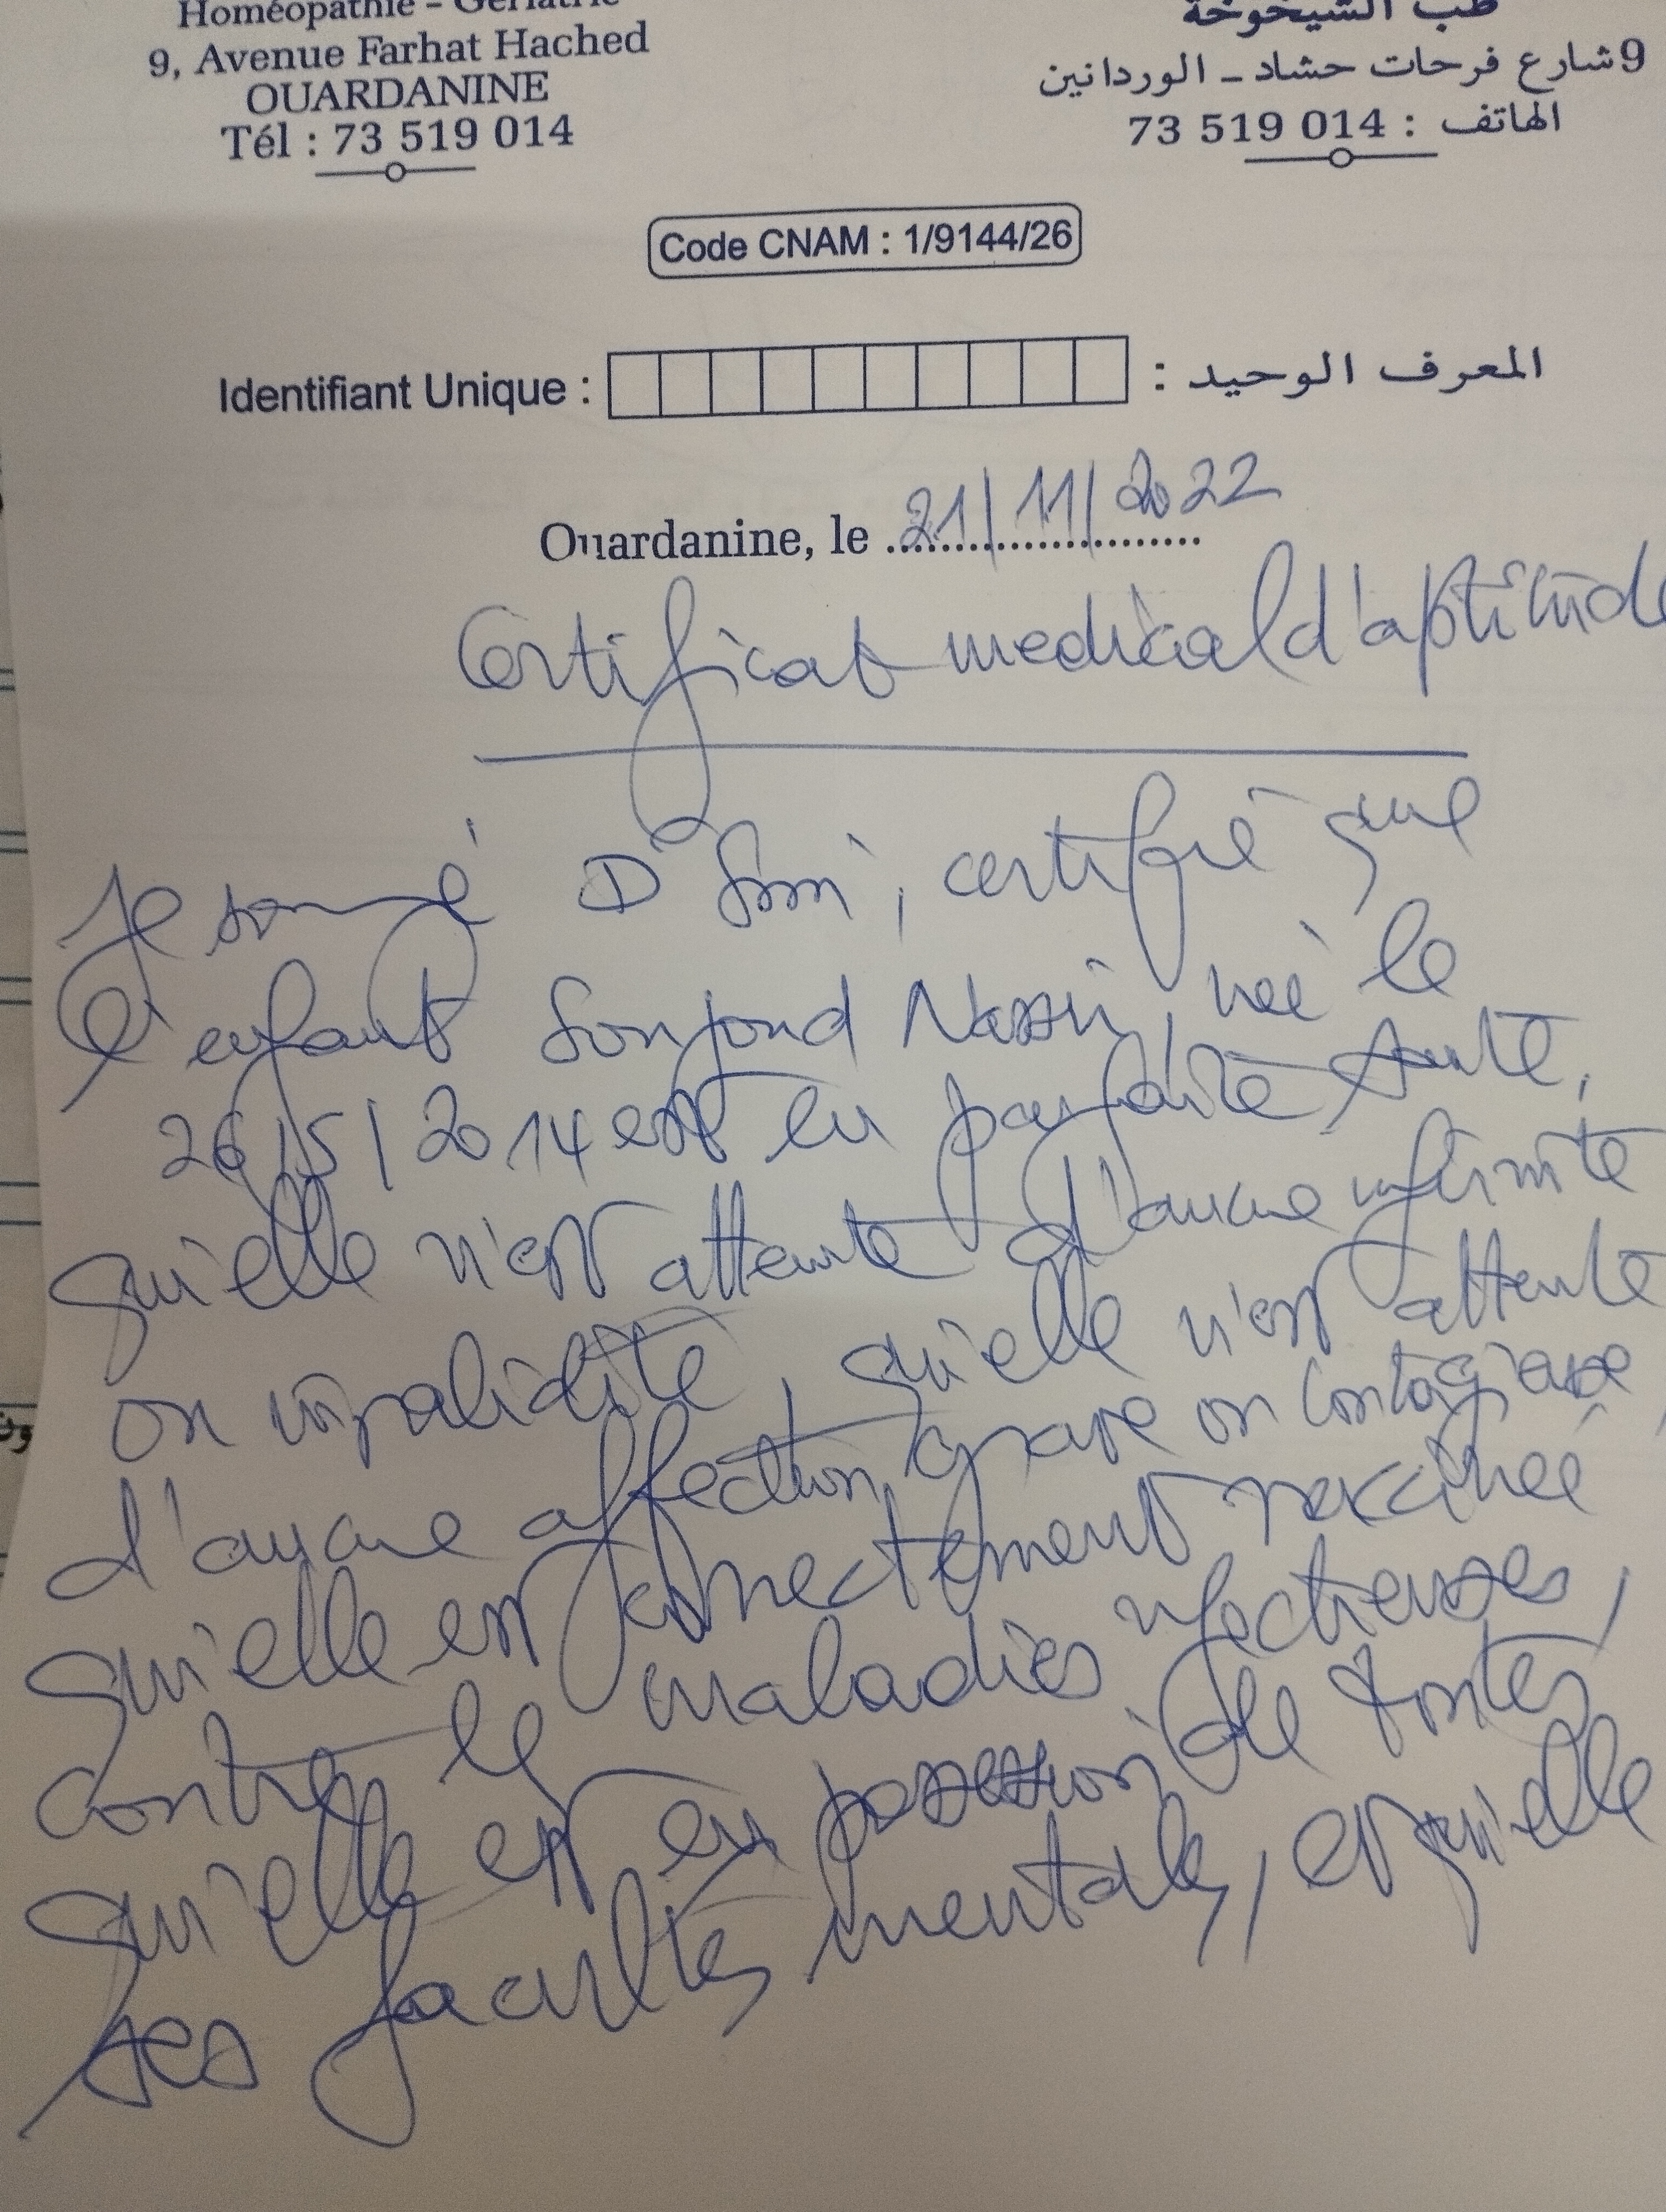 Homéopathie - Gériatrie
9, Avenue Farhat Hached
OUARDANINE
Tél : 73 519 014
طب الشيخوخة
9 شارع فرحات حشاد - الوردانين
الهاتف : 73 519 014
Code CNAM : 1/9144/26
Identifiant Unique : المعرف الوحيد :
Ouardanine, le 21/11/2022
Certificat medical d'aptitude
Je sousigné Dr , certifie que
l'enfant née le
26/5/2014 est en parfaite santé,
qu'elle n'est atteinte d'aucune infirmité
ou invalidité, qu'elle n'est atteinte
d'aucune affection grave ou contagieuse,
qu'elle est correctement vaccinée
contre les maladies infectieuses,
qu'elle est en possession de toutes
ses facultés mentales, et qu'elle